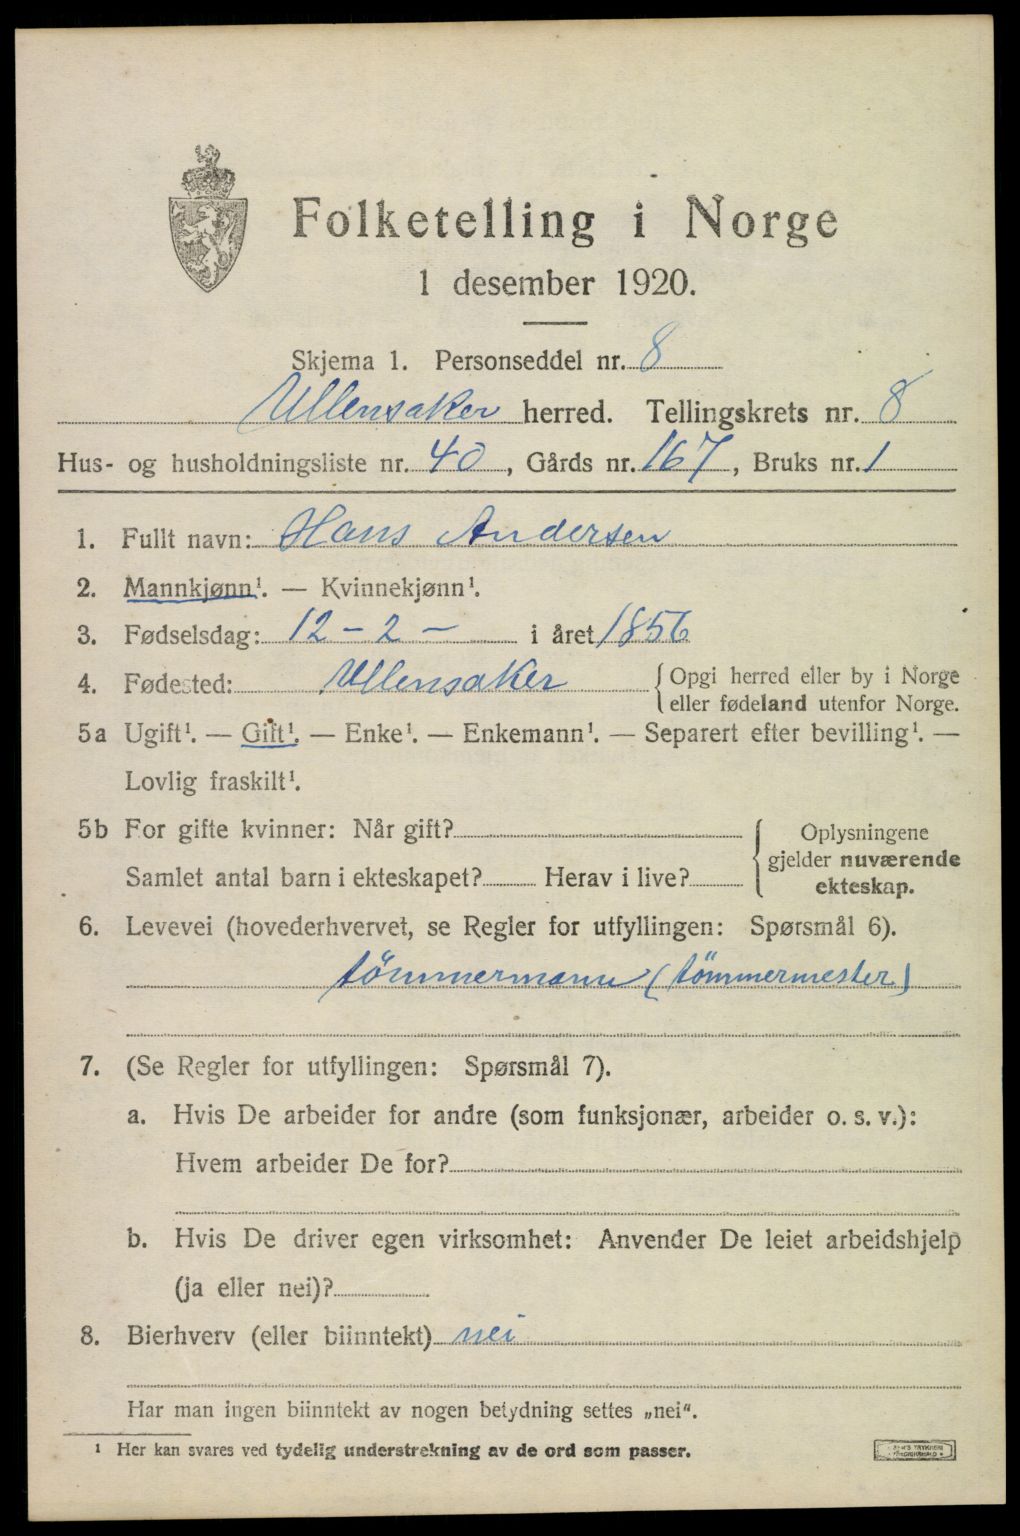 Folketelling i Norge
1 desember 1920.
Skjema 1. Personseddel nr. 8
Ullensaker herred. Tellingskrets nr. 8
Hus- og husholdningsliste nr. 40, Gårds nr. 167, Bruks nr. 1
1. Fullt navn: Hans Andersen
2. Mannkjønn¹. — Kvinnekjønn¹.
3. Fødselsdag: 12 - 2 - i året 1856
4. Fødested: Ullensaker {Opgi herred eller by i Norge
eller fødeland utenfor Norge.
5a Ugift¹. — Gift¹. — Enke¹. — Enkemann¹. — Separert efter bevilling¹. —
Lovlig fraskilt¹.
5b For gifte kvinner: Når gift?
Samlet antal barn i ekteskapet? Herav i live?
{Oplysningene
gjelder nuværende
ekteskap.
6. Levevei (hovederhvervet, se Regler for utfyllingen: Spørsmål 6).
tömmermann (tömmermester)
7. (Se Regler for utfyllingen: Spørsmål 7).
a. Hvis De arbeider for andre (som funksjonær, arbeider o. s. v.):
Hvem arbeider De for?
b. Hvis De driver egen virksomhet: Anvender De leiet arbeidshjelp
(ja eller nei)?
8. Bierhverv (eller biinntekt) nei
Har man ingen biinntekt av nogen betydning settes „nei“.
¹ Her kan svares ved tydelig understrekning av de ord som passer.